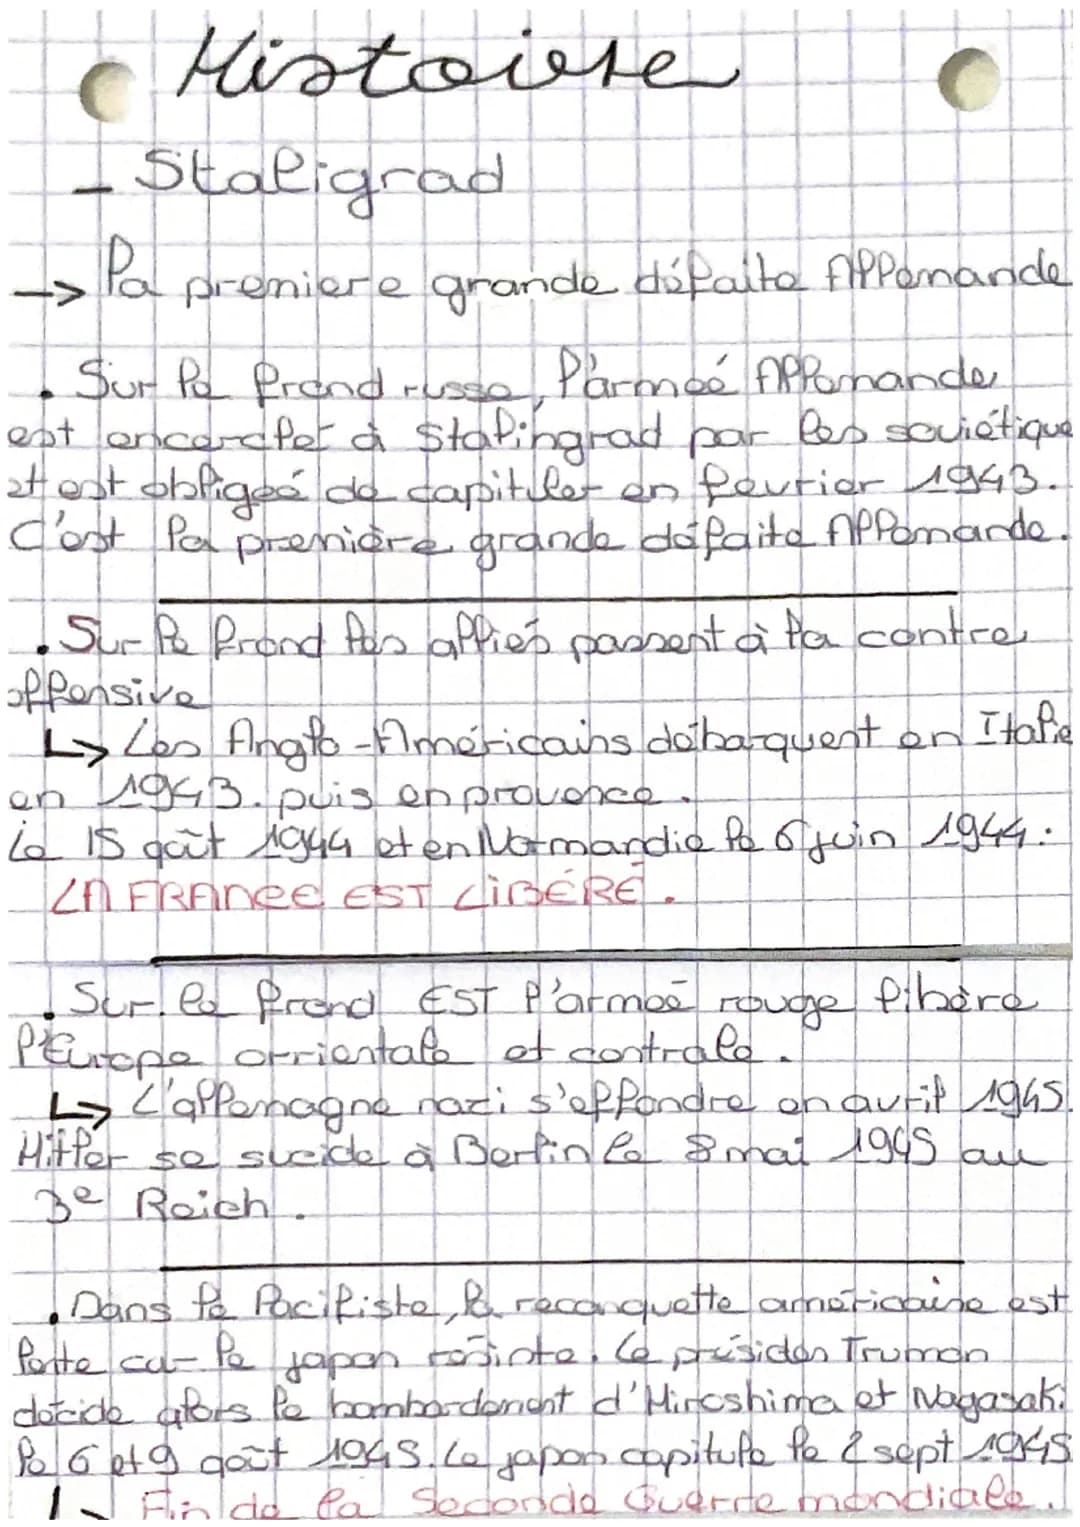 Histoire
- Staligrad
-> la premiere grande défaite Allemande
. Sur le frond russe, l'armeé Allemande
est encercler à Stalingrad par les soviétique
et est obligeé de capituler en fevrier 1943.
C'est la première grande défaite Allemande.
. Sur le frond les allies passent à la contre
offensive
↳ Les Anglo-Américains débarquent en Italie
en 1943. puis en provence.
le 15 août 1944 et en Normandie le 6 juin 1944.
LA FRANCE EST LIBÉRÉ.
. Sur le frond EST l'armeé rouge libère
l'Europe orrientale et centrale.
↳ L'allemagne nazi s'effondre en avril 1945.
Hitler se sucide à Berlin le 8 mai 1945 au
3e Reich.
. Dans le Pacifiste, la reconquette américaine est
lente car le japon résiste. Le présiden Truman
décide alors le bombardement d'Hiroshima et Nagasaki
le 6 et 9 août 1945. Le japon capitule le 2 sept 1945
↳ Fin de la Seconde Guerre mondiale.